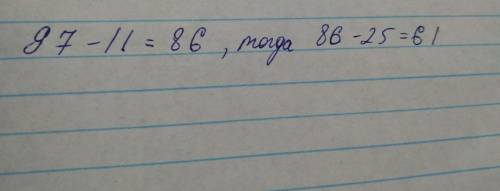 97 - 11 = 86 , тогда 86 - 25 = 61